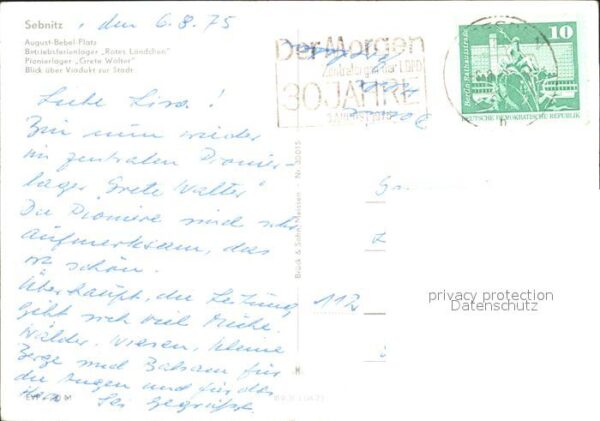 Sebnitz, den 6.8.75
August-Bebel-Platz
Betriebsferienlager „Rotes Ländchen"
Pionierlager „Grete Walter"
Blick über Viadukt zur Stadt
Liebe Lisa!
Bin nun wieder
im zentralen Pionier-
lager Grete Walter!
Die Pioniere sind sehr
aufmerksam, das
ist schön.
Überhaupt, die Leitung
gibt sich viel Mühe.
Wälder, Wiesen, kleine
Berge sind Balsam für
die Augen und für das
Herz. Sei gegrüßt.
EVP
M
Brück & Sohn, Meissen - Nr. 30015
Der Morgen
Zentralorgan der LDPD
30 JAHRE
10
Berlin, Rathausstraße
DEUTSCHE DEMOKRATISCHE REPUBLIK
112
privacy protection
Datenschutz